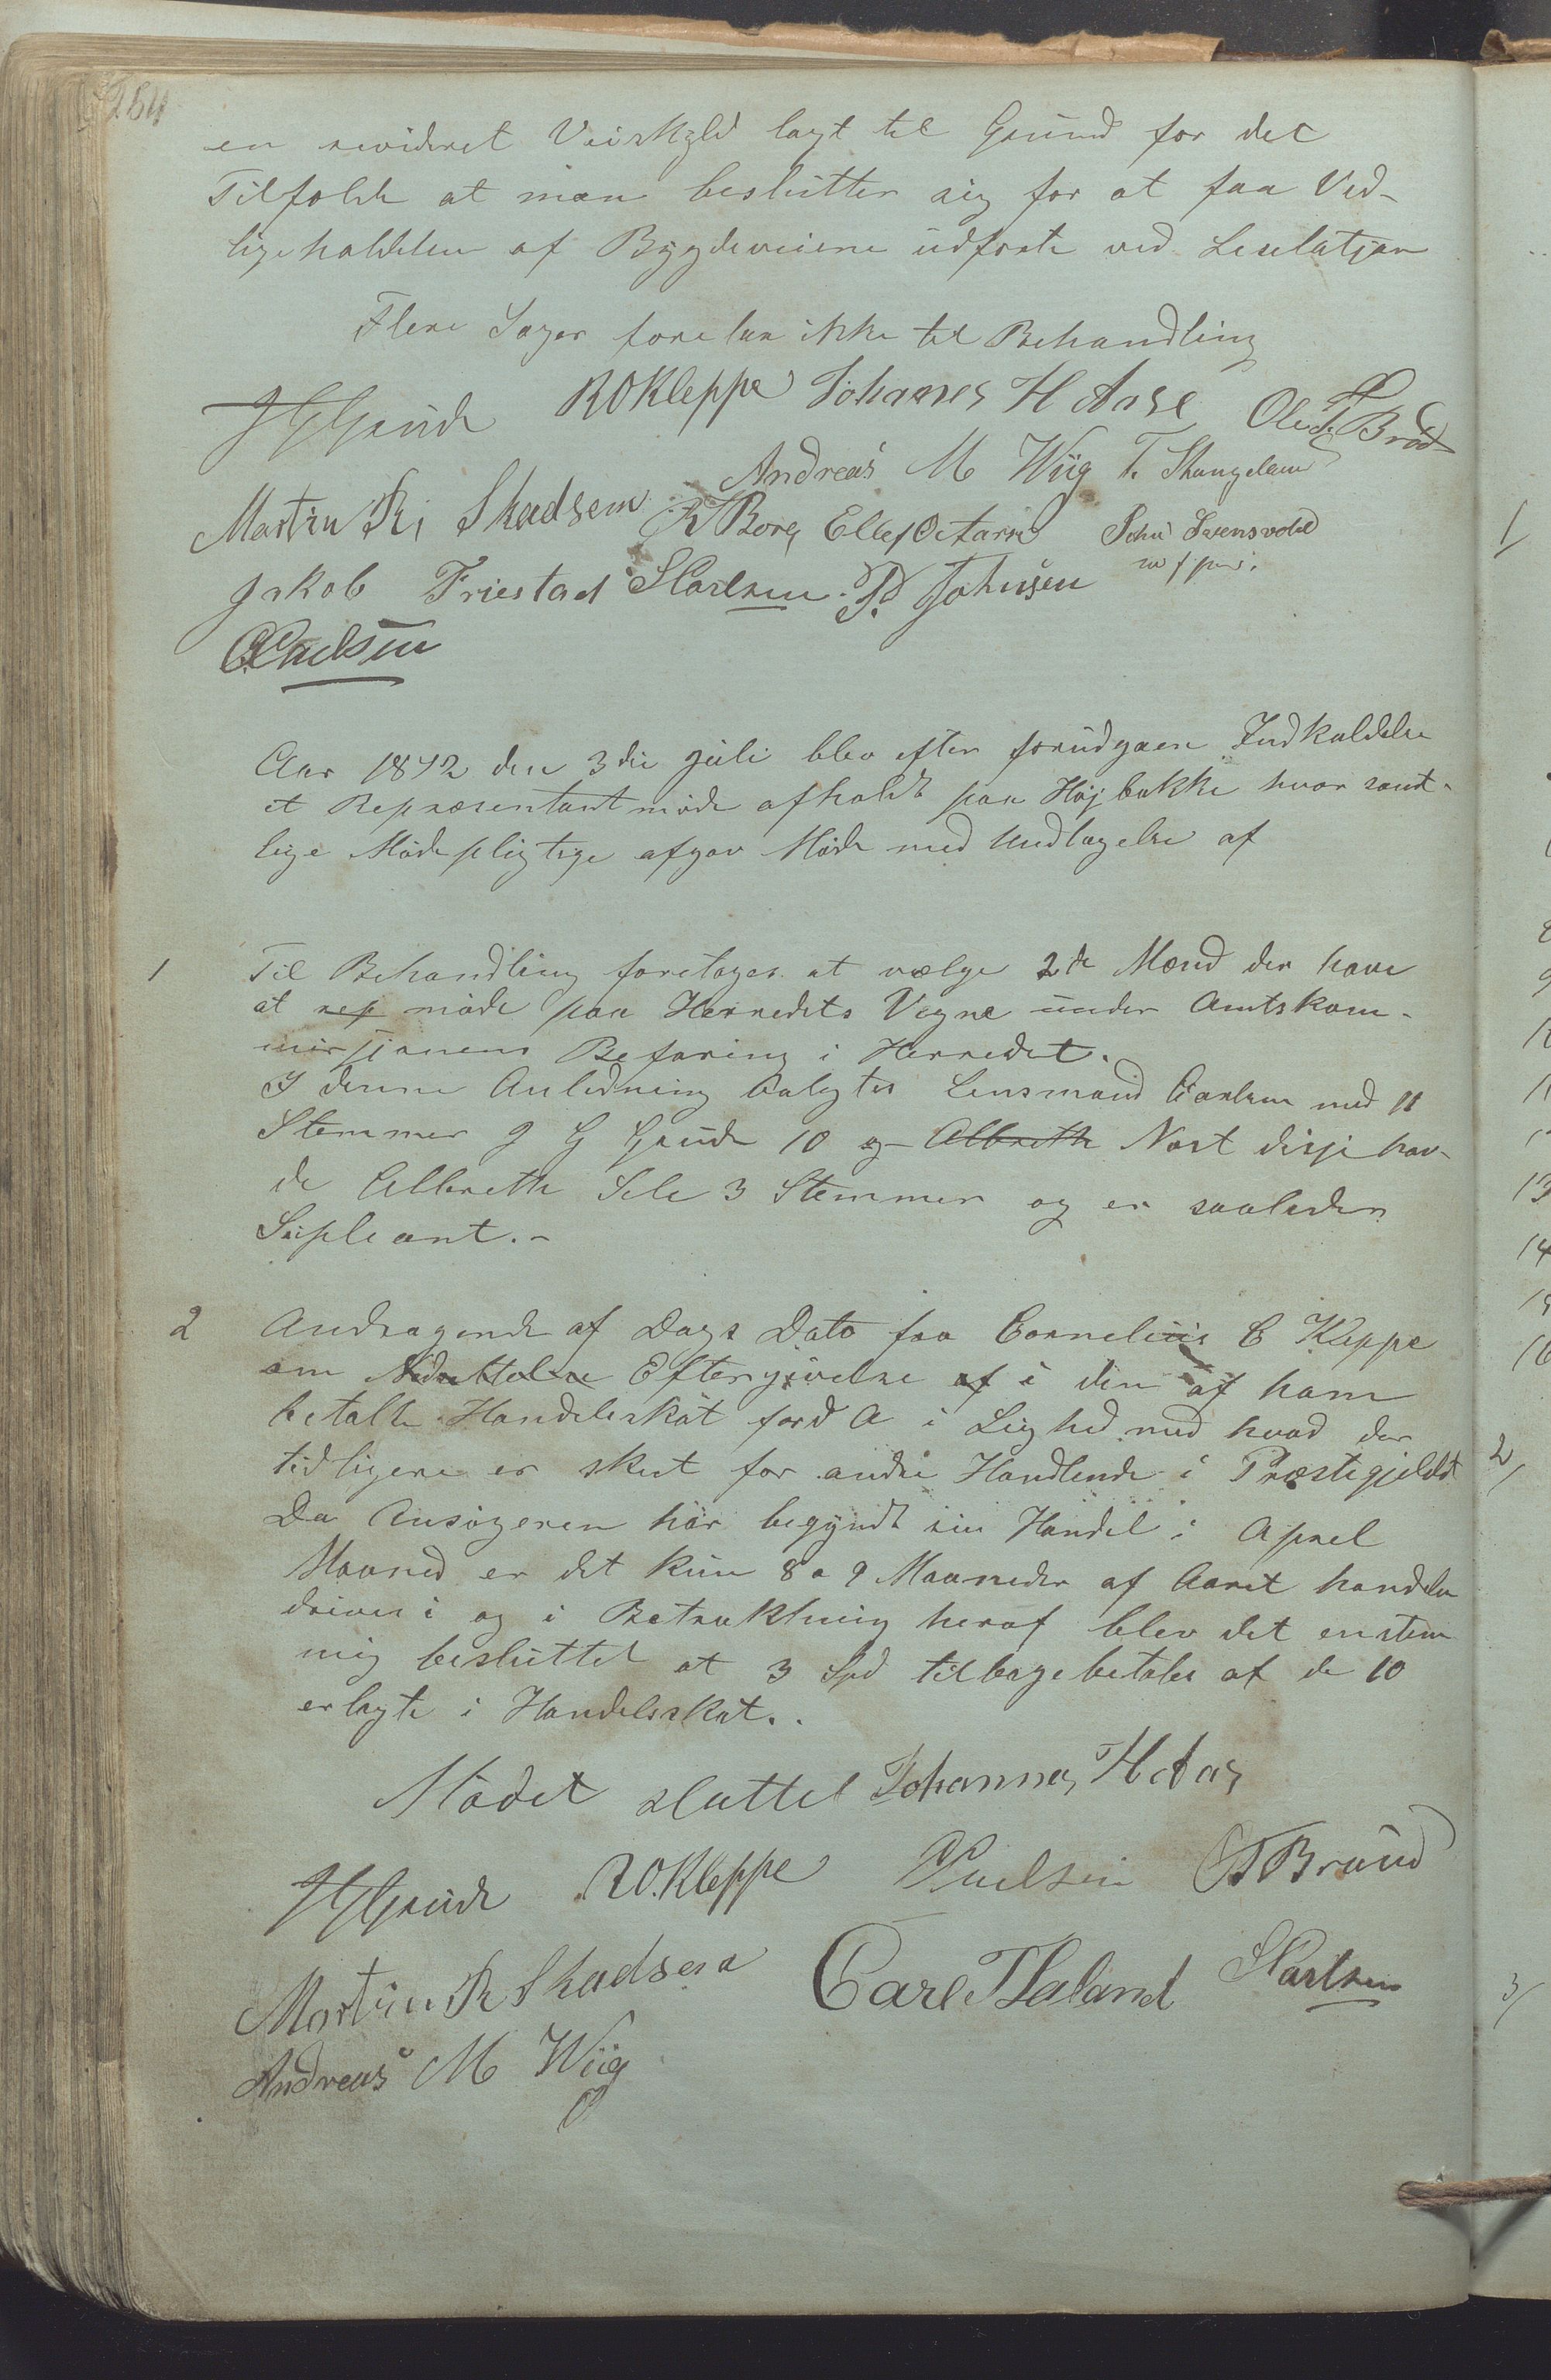 284
en revideret Veiskyld lagt til Grund for det
Tilfælde at man beslutter sig for at faa Ved-
ligeholdelsen af Bygdeveiene udførte ved Liselatsjon
Flere Sager forelaa ikke til Behandling
JGGrude ROKleppe Johannes H Aase Ole T. Brød
Andreas M Wiig T. Skangelaun
Martin R, Skadsem R Bore Ellef O Aarre Svensvold
Jakob Friestad SCarlsen. P. Johnsen
Paulsen
Aar 1872 den 3die Juli blev efter forudgaaen Indkaldelse
et Repræsentantmøde afholdt paa Højbakke hvor samt-
lige Mødepligtige afgav Møde med Undtagelse af
1 Til Behandling foretoges at vælge 2de Mænd der have
at rep møde paa Herredets Vegne under Amtskom-
missjonens Befaring i Herredet.
I denne Anledning valgtes Lensmand Carlsen med 11
Stemmer J G Grude 10 og Albreth Næst disse hav-
de Albreth Sele 3 Stemmer og er saaledes
Supleant.-
2 Andragende af Dags Dato fra Cornelius C Kleppe
om Nedsettelse Eftergivelse af i den af ham
betalte Handelsskat ford A i Lighed med hvad der
tidligere er skeet for andre Handlende i Præstegjeldet
Da Ansøgeren har begyndt sin Handel i Aprel
Maaned er det kun 8 a 9 Maaneder af Aaret handelen
drives i og i Betraktning heraf blev det enstem
mig besluttet at 3 Spd tilbagebetales af de 10
erlagte i Handelsskat..
Mødet sluttet Johannes H Aas
JGGrude RO.Kleppe Paulsen OTBrüud
Martin R Skadsem Carl THaland SCarlsen
Andreas M Wiig
1/
13
14
16
2/
3/